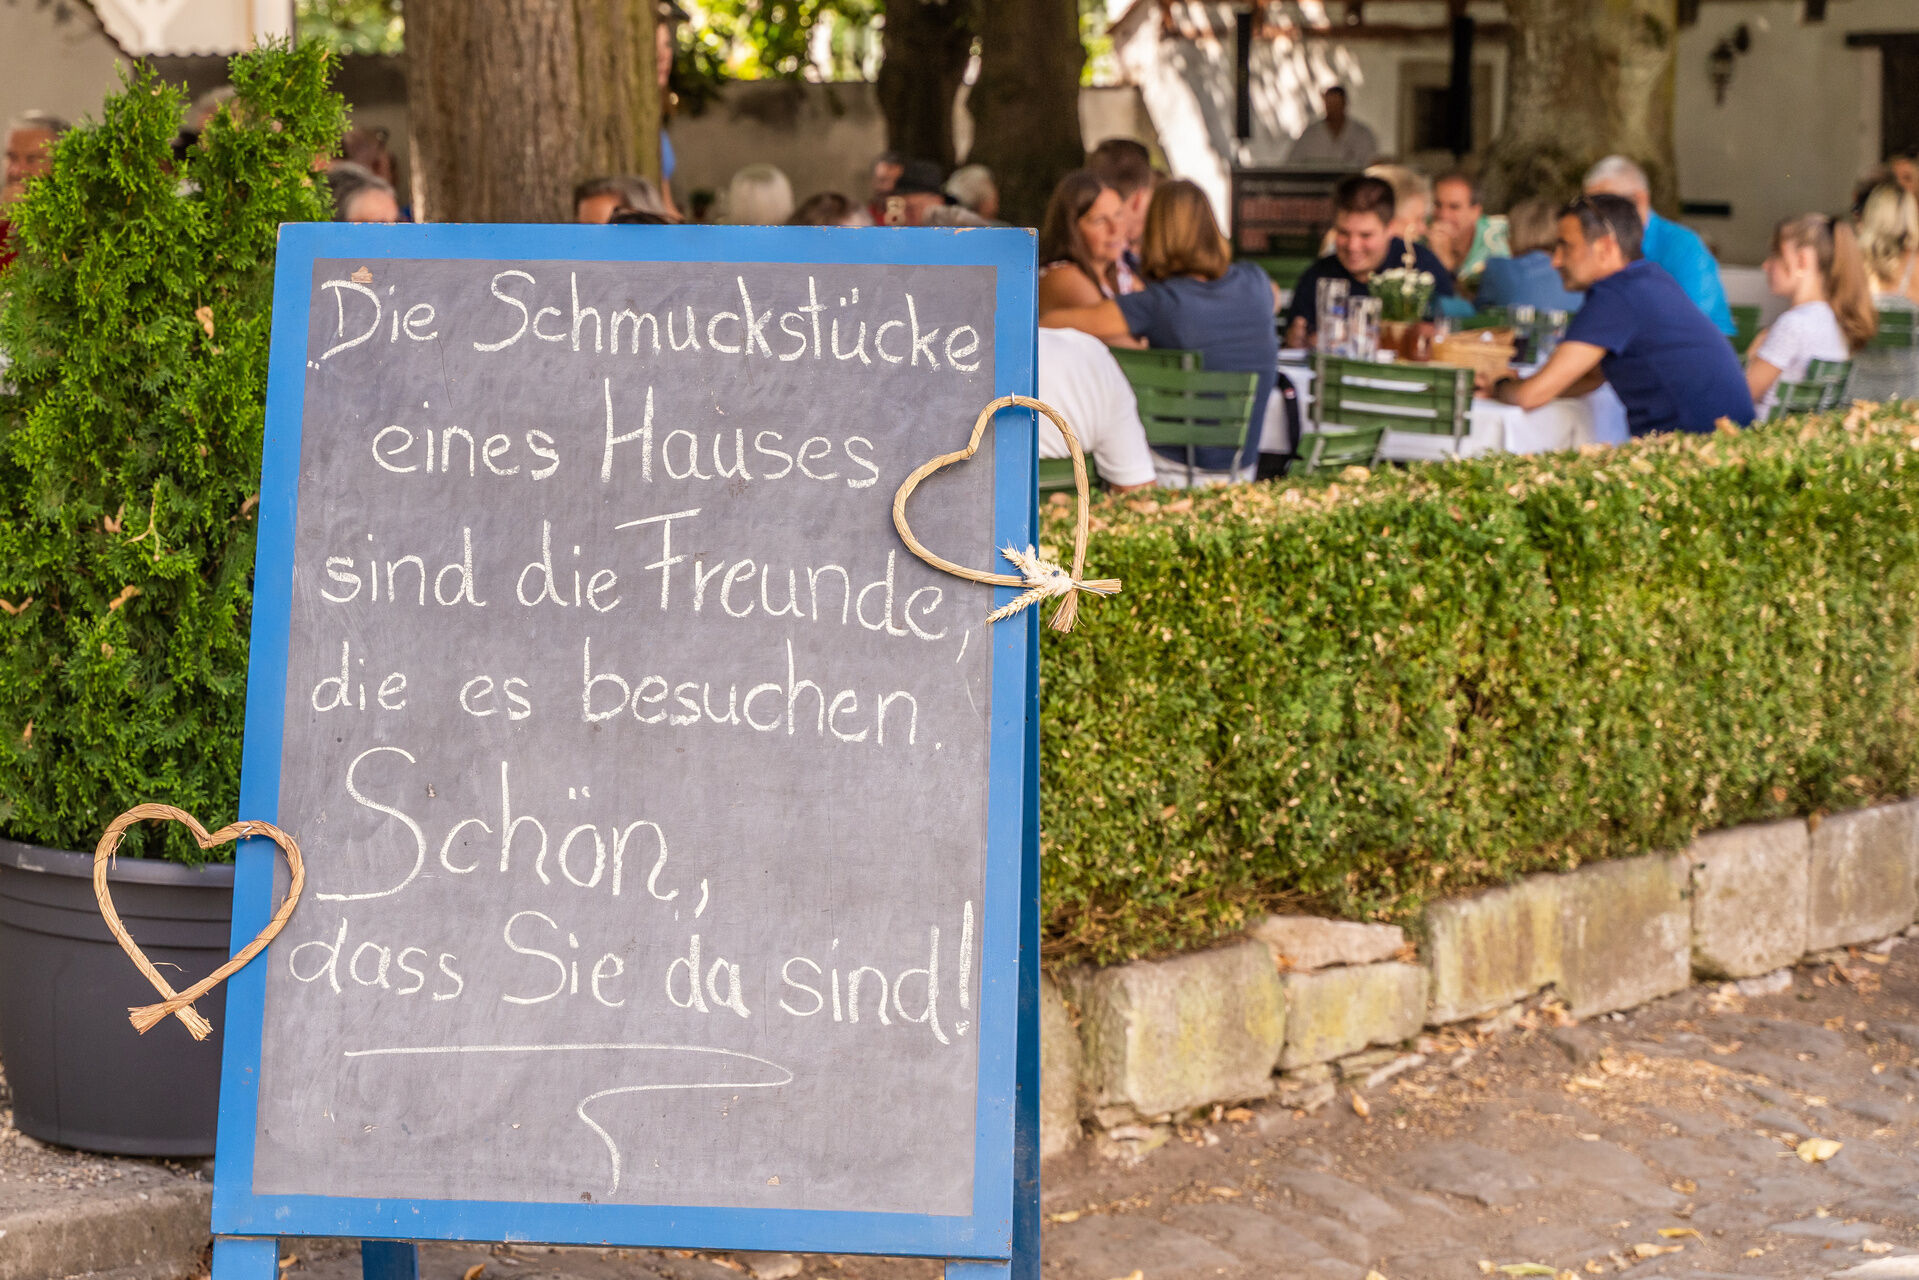 Die Schmuckstücke
eines Hauses
sind die Freunde,
die es besuchen.
Schön,
dass Sie da sind!